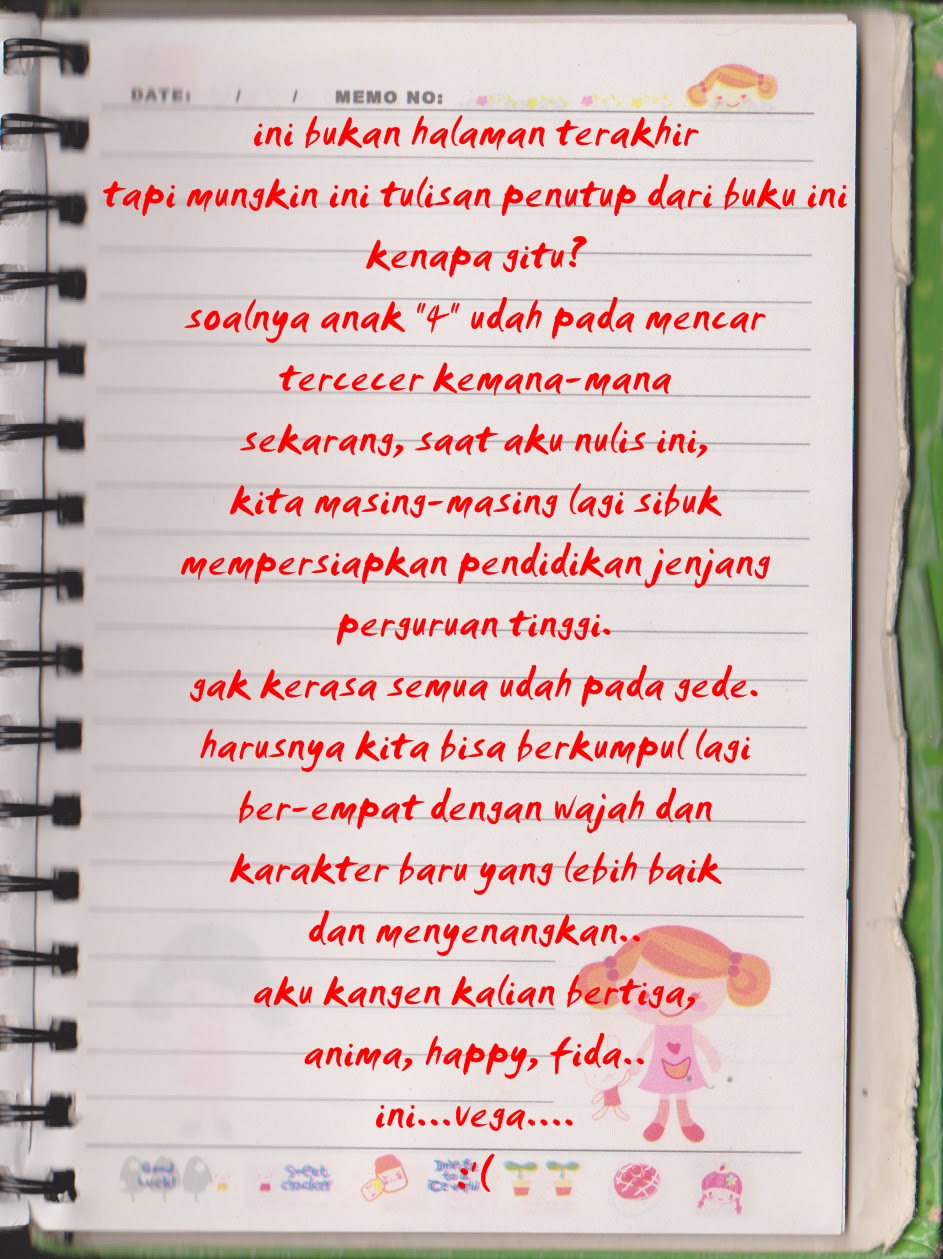 DATE: / / MEMO NO:
ini bukan halaman terakhir
tapi mungkin ini tulisan penutup dari buku ini
kenapa gitu?
soalnya anak "4" udah pada mencar
tercecer kemana-mana
sekarang, saat aku nulis ini,
kita masing-masing lagi sibuk
mempersiapkan pendidikan jenjang
perguruan tinggi.
gak kerasa semua udah pada gede.
harusnya kita bisa berkumpul lagi
ber-empat dengan wajah dan
karakter baru yang lebih baik
dan menyenangkan..
aku kangen kalian bertiga,
anima, happy, fida..
ini...vega....
:'(
Sweet
cracker